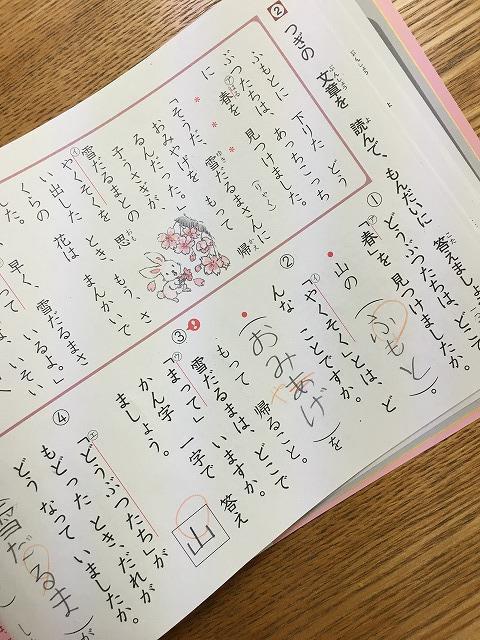 2 つぎの 文章を 読んで、もんだいに 答えましょう。
ふもとに 下りた どう
ぶつたちは、あっちこっち
に ㋐春を 見つけました。
*
*
*
(りゃく)
「そうだ、雪だるまさんに
おみやげを もって 帰
るんだった。」
子うさぎが、
雪だるまとの
㋑やくそくを 思
い出した とき、もう、さ
くらの 花は まんかいで
した。
早く、雪だるまさ
① ㋐「春」を どうぶつたちは、どこで
見つけましたか。
・山の(ふもと)。
② ㋑「やくそく」とは、ど
んな ことですか。
・(おみあげ)を
や
もって 帰ること。
③ 雪だるまは、どこで
㋒「まって」いますか。
かん字 一字で 答え
ましょう。
山
④ ㋓「どうぶつたち」が
もどった とき、だれが
どう なって いましたか。
(雪だるま)が